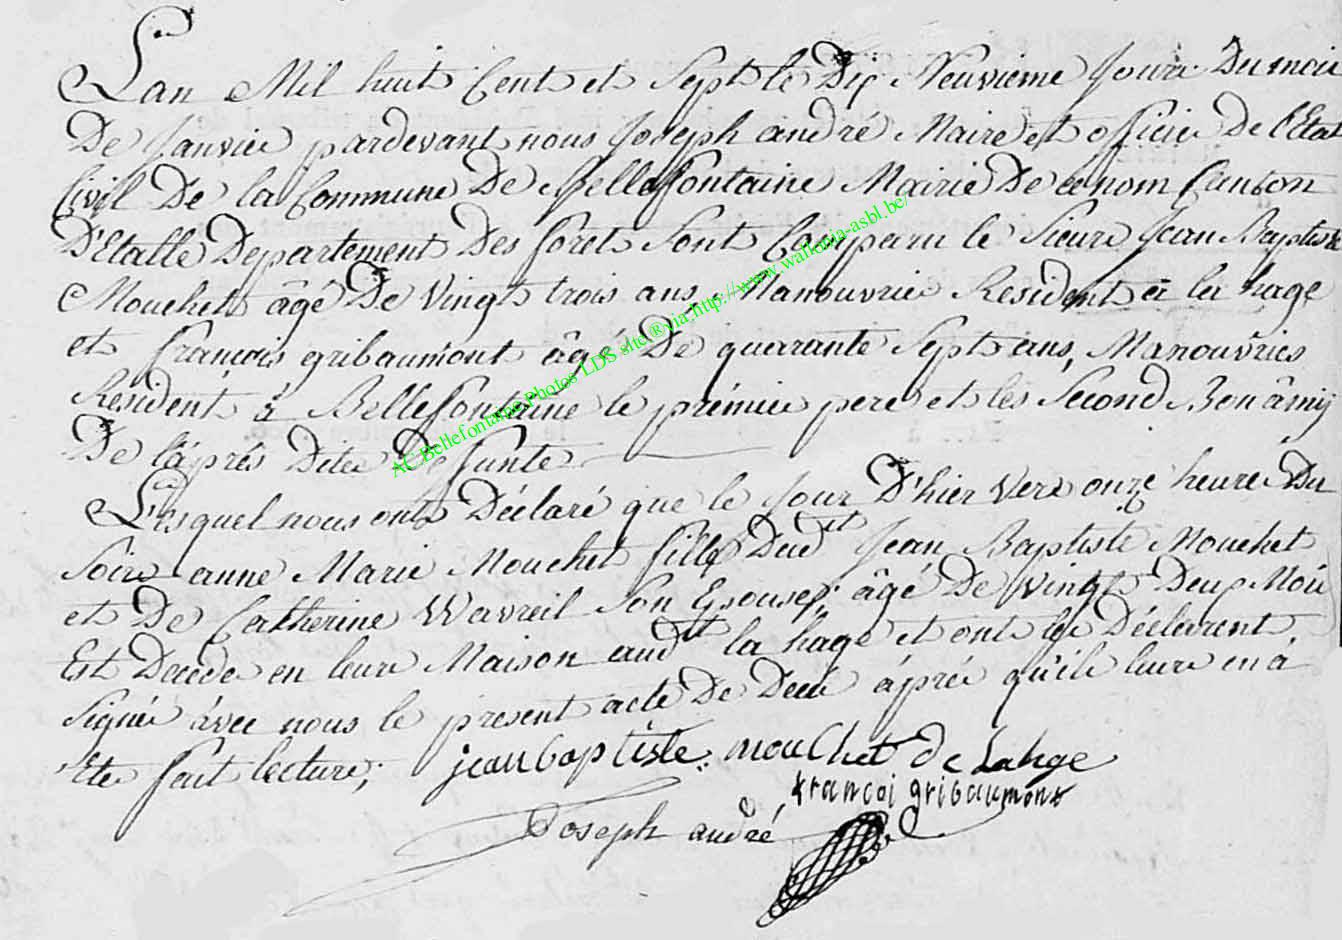 L'an Mil huit Cent et Sept le Dix Neuvieme Jour Du mois
De Janvier pardevant nous Joseph andré Maire et officier De l'Etat
Civil De la Commune De Bellefontaine Mairie De ce nom Canton
D'Etalle Departement Des foret Sont Comparu le Sieur Jean Baptiste
Mouchet âgé De Vingt trois ans, Manouvrier Resident à la hage
et François gribaumont âgé De quarante Sept ans, Manouvries
Resident à Bellefontaine le prémier pere et les Second Bon âmij
De l'áprés Dete Defunte
Lesquel nous ont Déclaré que le Jour D'hier Vers onze heure Du
Soire anne Marie Mouchet fille Dudit Jean Baptiste Mouchet
et De Catherine Wavreil Son Epouse, âgé De Vingt Deux Moi
Est Decede en leur Maison audit la hage et ont les Déclarent,
Signé ávec nous le present acte De Decé áprés qu'ils leure en à
Ete fait lecture;
jean baptiste mouchet de Lahge
francoi gribaumont
Joseph andré
AC Bellefontaine Photos LDS site ® via http://www.wallonia-asbl.be/